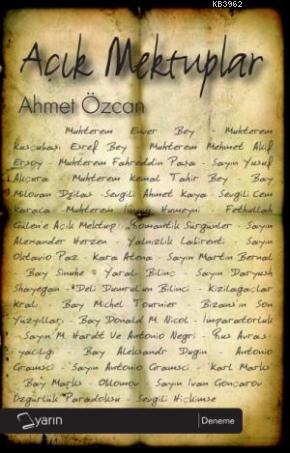 KB3962
Açık Mektuplar
Ahmet Özcan
Muhterem Enver Bey - Muhterem
Kuşçubaşı Eşref Bey - Muhterem Mehmet Akif
Ersoy - Muhterem Fahreddin Paşa - Sayın Yusuf
Akçura - Muhterem Kemal Tahir Bey - Bay
Milovan Djilas - Sevgili Ahmet Kaya - Sevgili Cem
Karaca - Muhterem Humeyni - Fethullah
Gülen'e Açık Mektup - Romantik Sürgünler - Sayın
Alexander Herzen - Yalnızlık Labirenti - Sayın
Oktavio Paz - Kara Atena - Sayın Martin Bernal
- Bay Sinuhe - Yaralı Bilinç - Sayın Daryush
Shayegan - Deli Dumrul'un Bilinci - Kızılağaçlar
Kralı - Bay Michel Tournier - Bizans'ın Son
Yüzyılları - Bay Donald M. Nicol - İmparatorluk
- Sayın M. Hardt Ve Antonio Negri - Rus Avras-
yacılığı - Bay Aleksandr Dugin - Antonio
Gramsci - Sayın Antonio Gramsci - Karl Marks
- Bay Marks - Oblomov - Sayın Ivan Goncarov -
Özgürlük Paradoksu - Sevgili Hiçkimse
yarın
Deneme